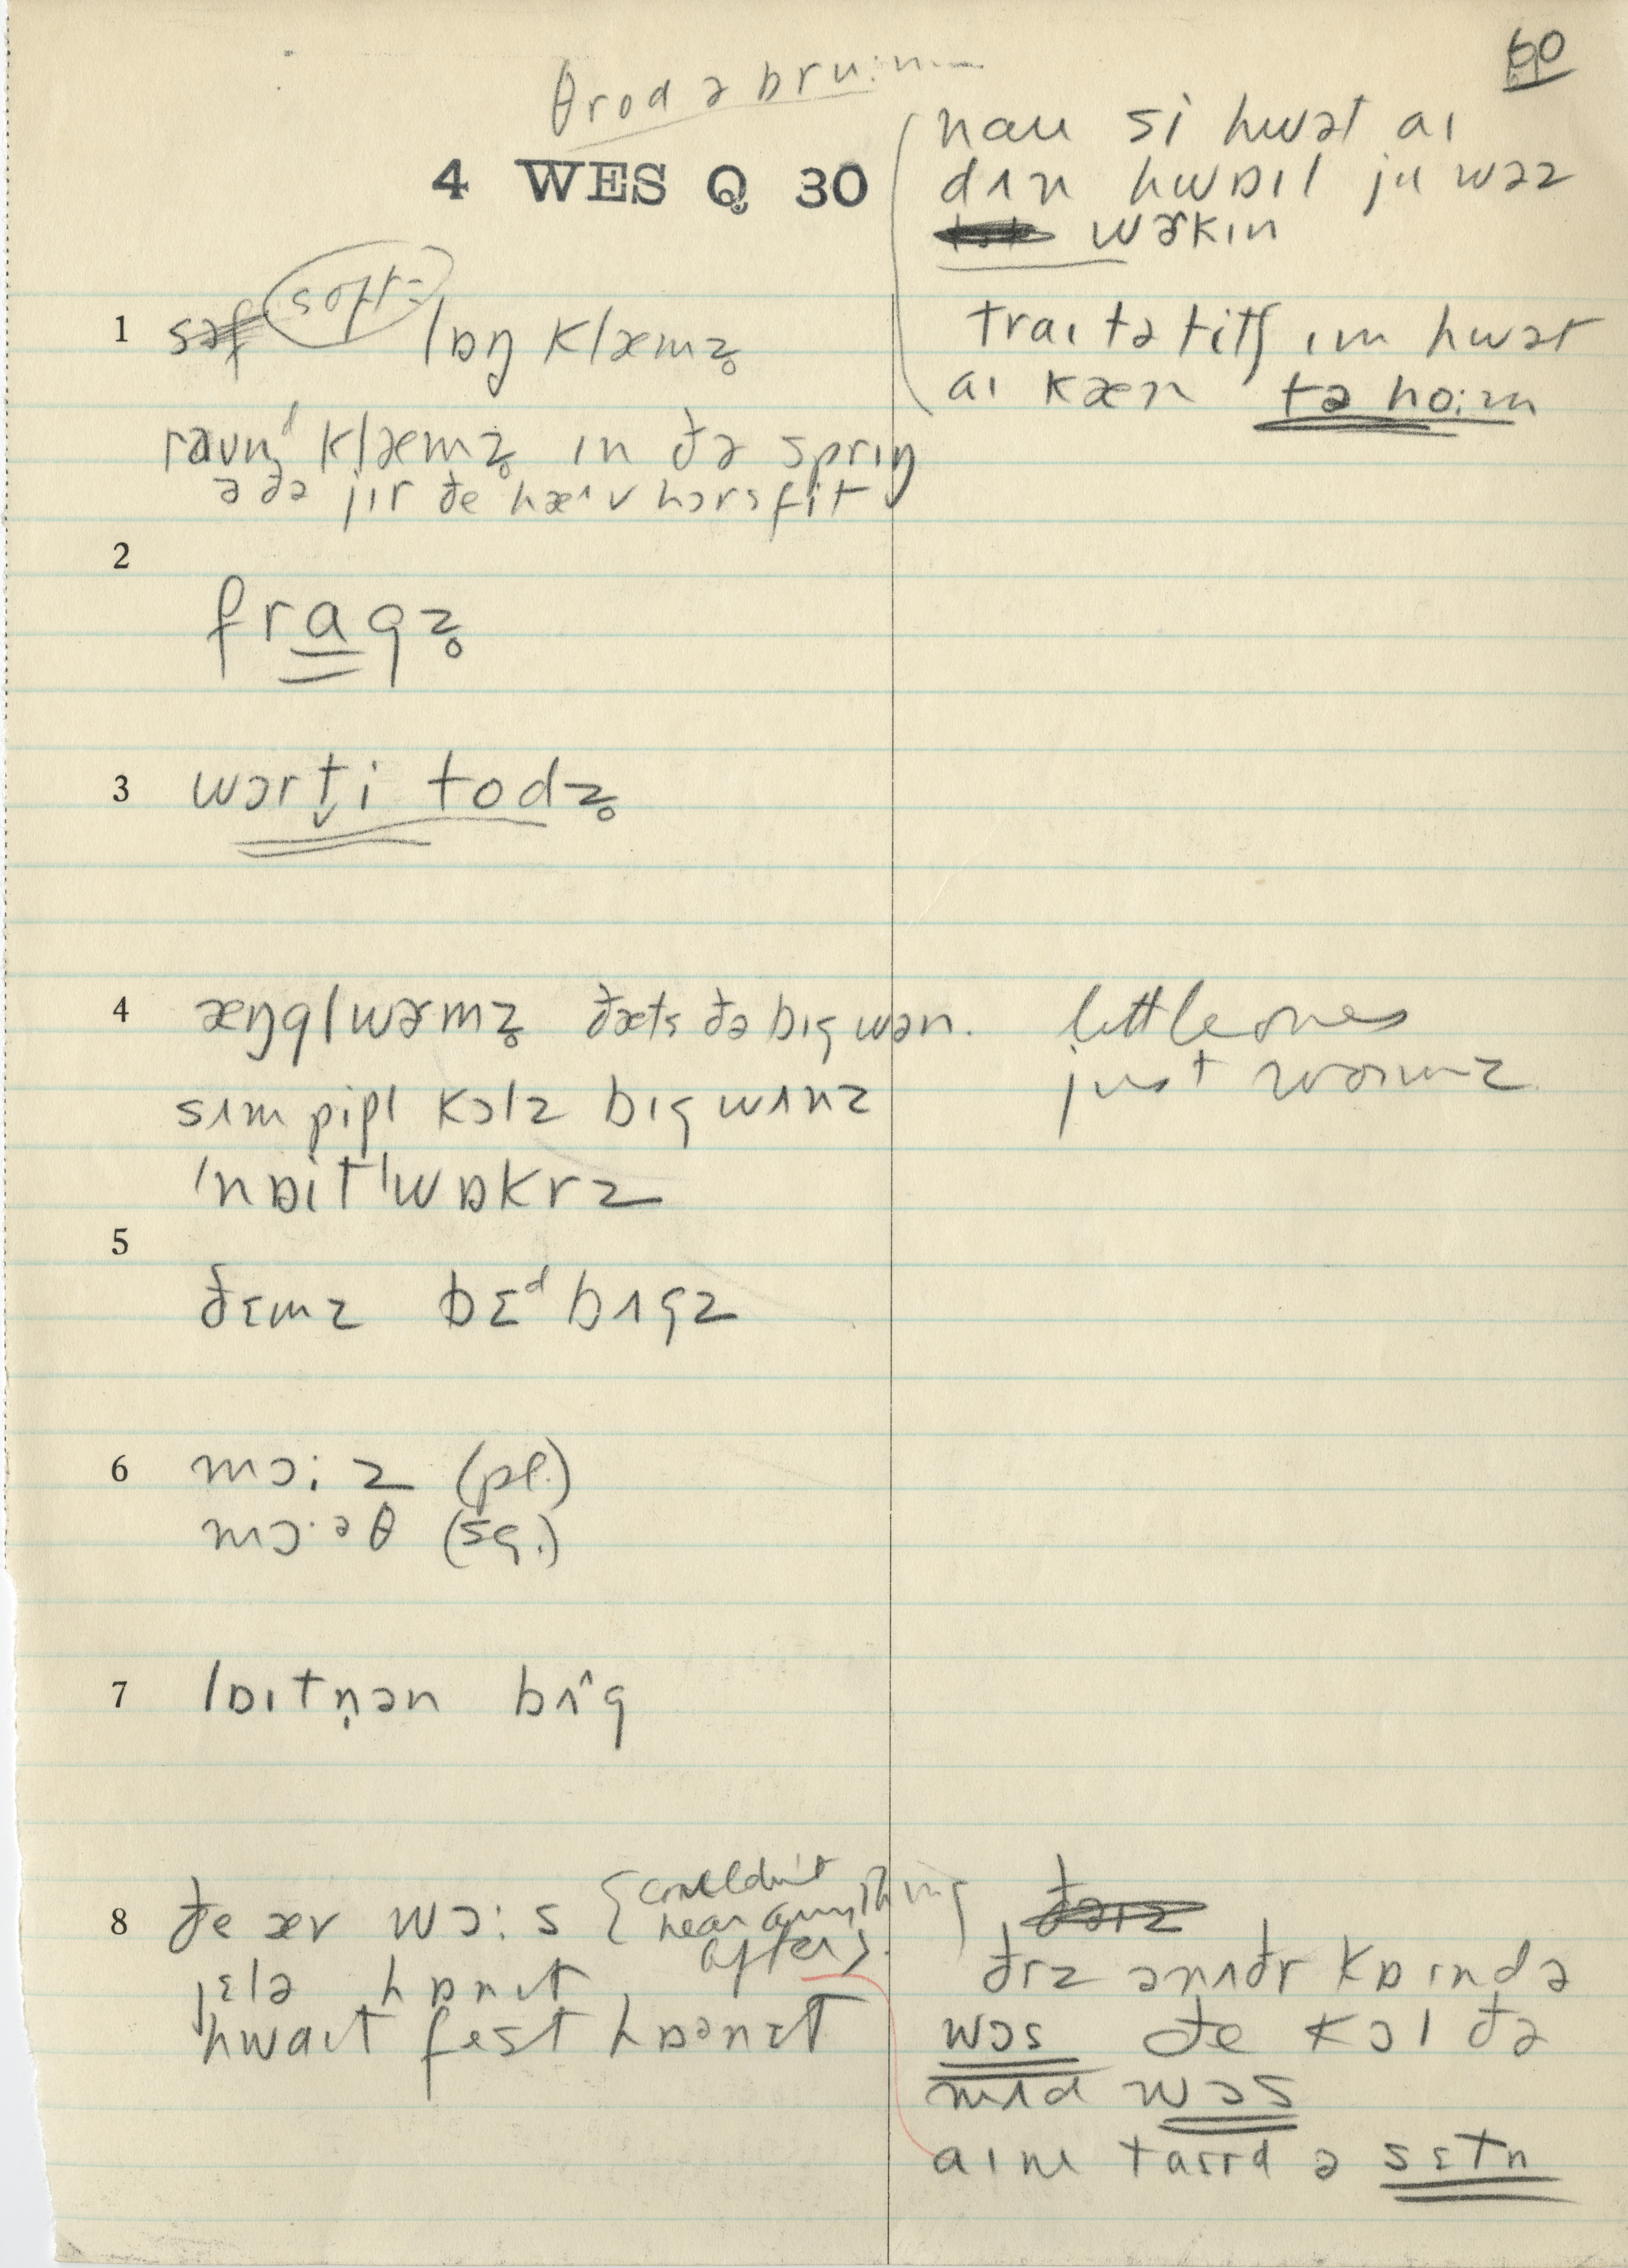 60
θrod ə bru:m
4 WES Q 30
nau si hwət aɪ
dʌn hwɒɪl ju wəz
wɚkɪn
traɪ tə titʃ ɪm hwət
aɪ kæn tə hoːm
1 səf soft- lɒŋ klæmz̥
raund klæmz̥ ɪn ðə sprɪŋ
ə ðə jɪr ðe hæˈv hɔrsfit
2
fragz̥
3 wɔrt̬i todz̥
4 æŋglwɚmz̥ ðæts ðə bɪg wən.
little ones
just wɔrmz
sʌm pipl kɔlz bɪg wʌnz
ˈnɒitˈwɒkrz
5
ðɛmz bɛᵈ bʌgz
6 mɔːz (pl.)
mɔ·əθ (sg.)
7 lɒɪtn̩ən bʌˆg
8 ðe ær wɔːs {couldn't
hear anything
after}
jɛlə hɒnɪt
hwaɪt fest hɒənɛt
ðrz ənʌðr kɒɪndə
wɔs ðe kɔl ðə
mʌd wɔs
aɪnt taɪrd ə sɛtn